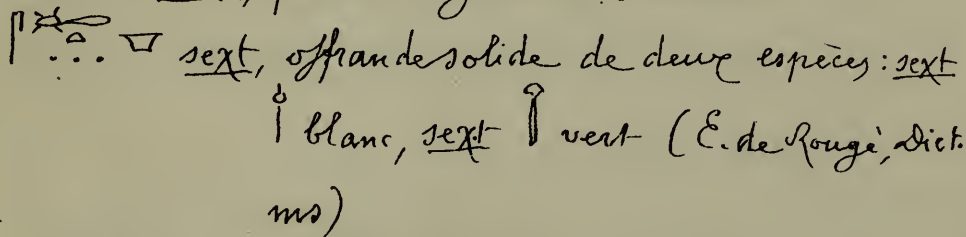 sext, offrande solide de deux espèces: sext
blanc, sext vert (E. de Rougé, Dict.
ms)